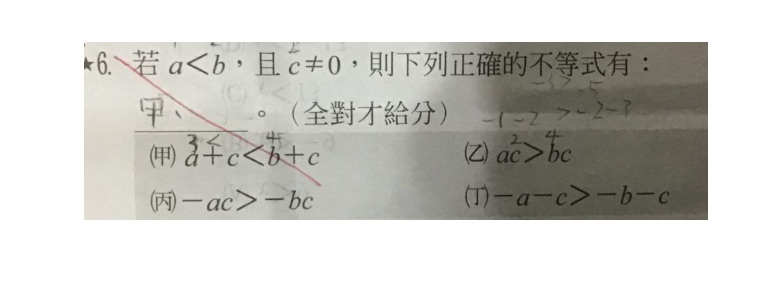 ★6. 若 a<b，且 c≠0，則下列正確的不等式有：
甲、。（全對才給分） -1-2 > -2-3
㈙ a+c<b+c (乙) ac>bc
(丙) －ac>－bc (丁) －a－c>－b－c